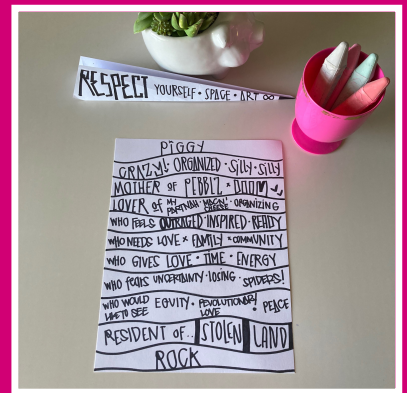 RESPECT YOURSELF • SPACE • ART ∞
PIGGY
CRAZY! • ORGANIZED • SILLY-SILLY
MOTHER OF PEBBLZ × DOOM
LOVER OF MY PARTNAH • MAC N' CHEESE • ORGANIZING
WHO FEELS OUTRAGED • INSPIRED • READY
WHO NEEDS LOVE × FAMILY × COMMUNITY
WHO GIVES LOVE • TIME • ENERGY
WHO FEARS UNCERTAINTY • LOSING • SPIDERS!
WHO WOULD LIKE TO SEE EQUITY • REVOLUTIONARY LOVE • PEACE
RESIDENT OF... STOLEN LAND
ROCK